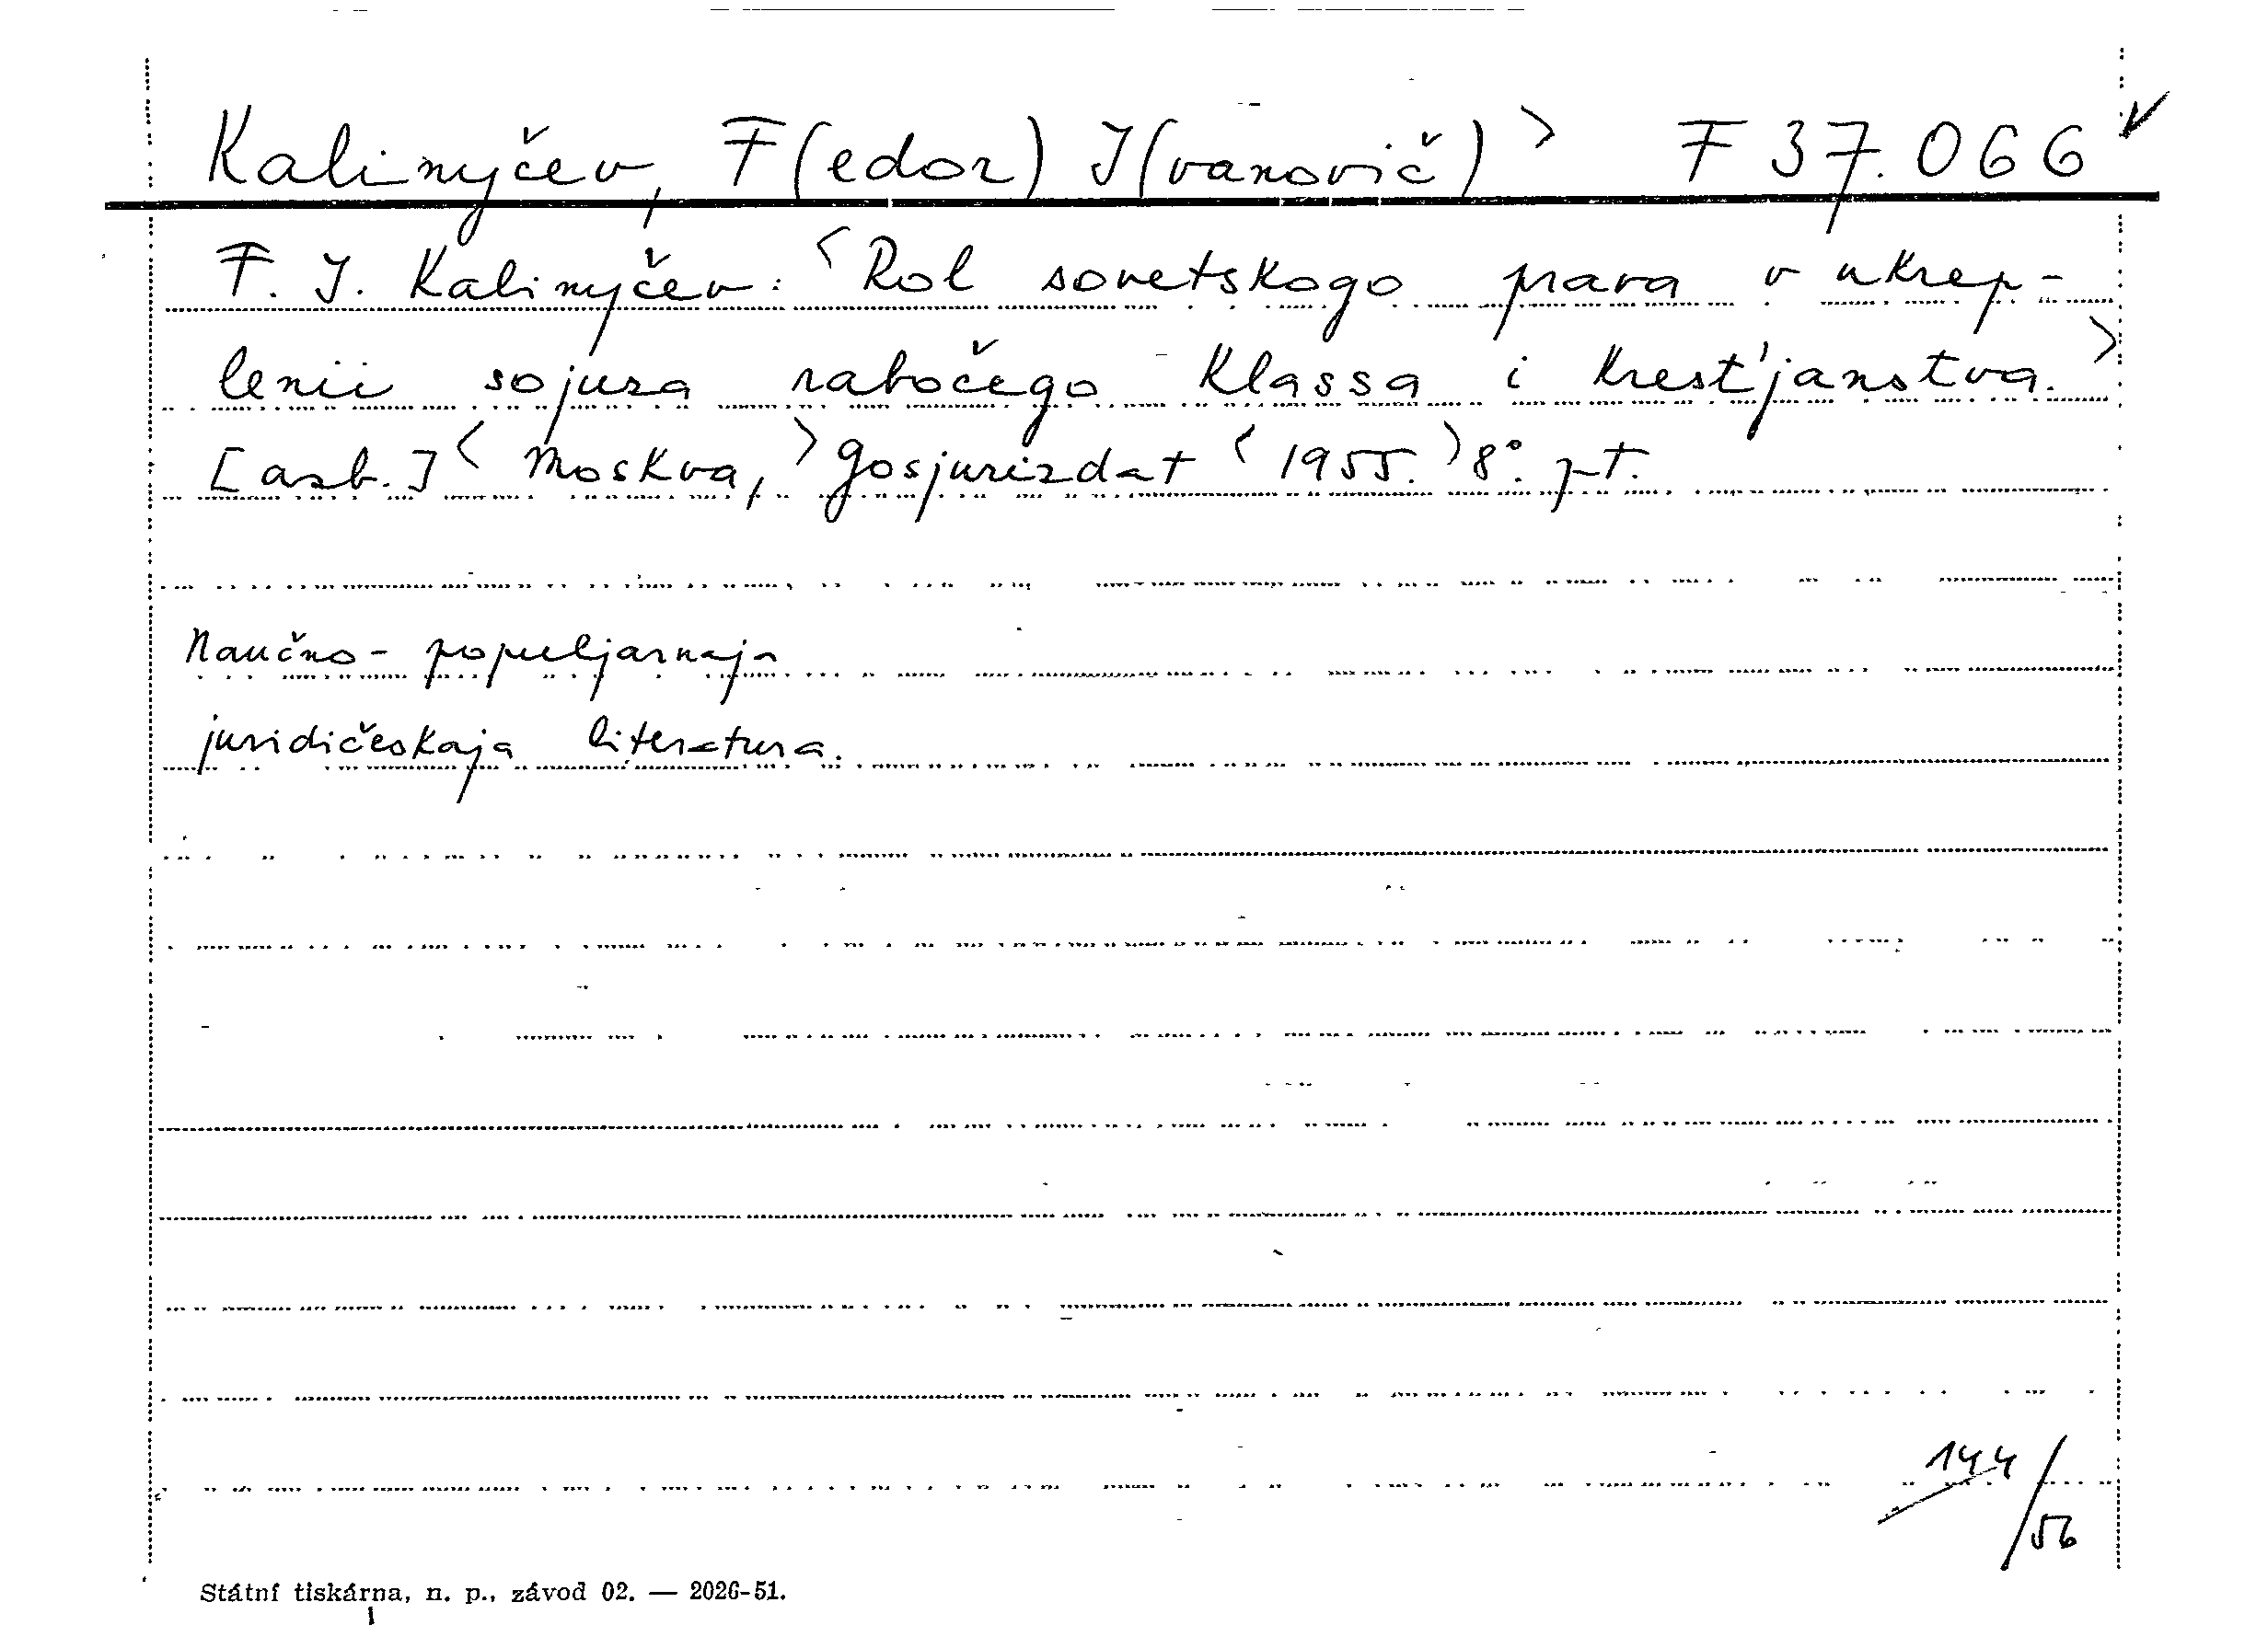 Kalinyčev, F(edor) J(vanovič)> F 37.066
F. J. Kalinyčev: <Rol sovetskogo prava v ukrep-
lenii sojuza rabočego klassa i krest'janstva.>
[azb.] <Moskva,> Gosjurizdat <1955.> 8°. pt.
Naučno-populjarnaja
juridičeskaja literatura.
144/56
Státní tiskárna, n. p., závod 02. — 2026-51.